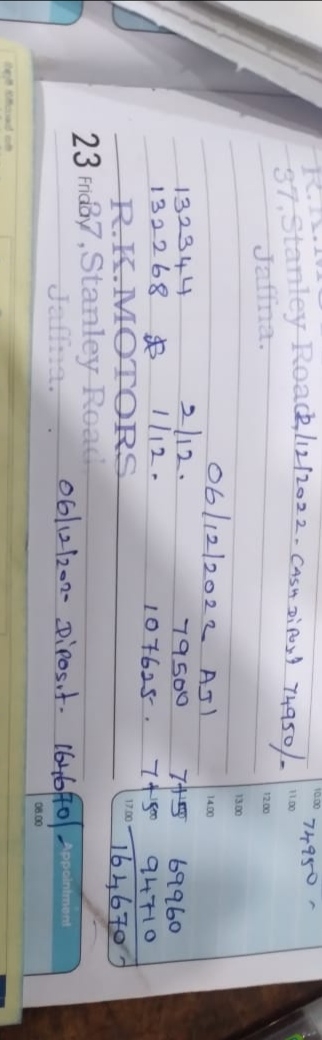 R.K.MO
37, Stanley Road, 2/12/2022 - Cash Diposit 74950/-
Jaffna.
10.00 74950
11.00
12.00
13.00
14.00
06/12/2022
132344 2/12. 79500 69960
132268 1/12. 107625. 94710
17.00 164,670
R.K.MOTORS
23 Friday 37, Stanley Road
Jaffna.
06/12/202 Diposit- 164670/-
Appointment
08.00